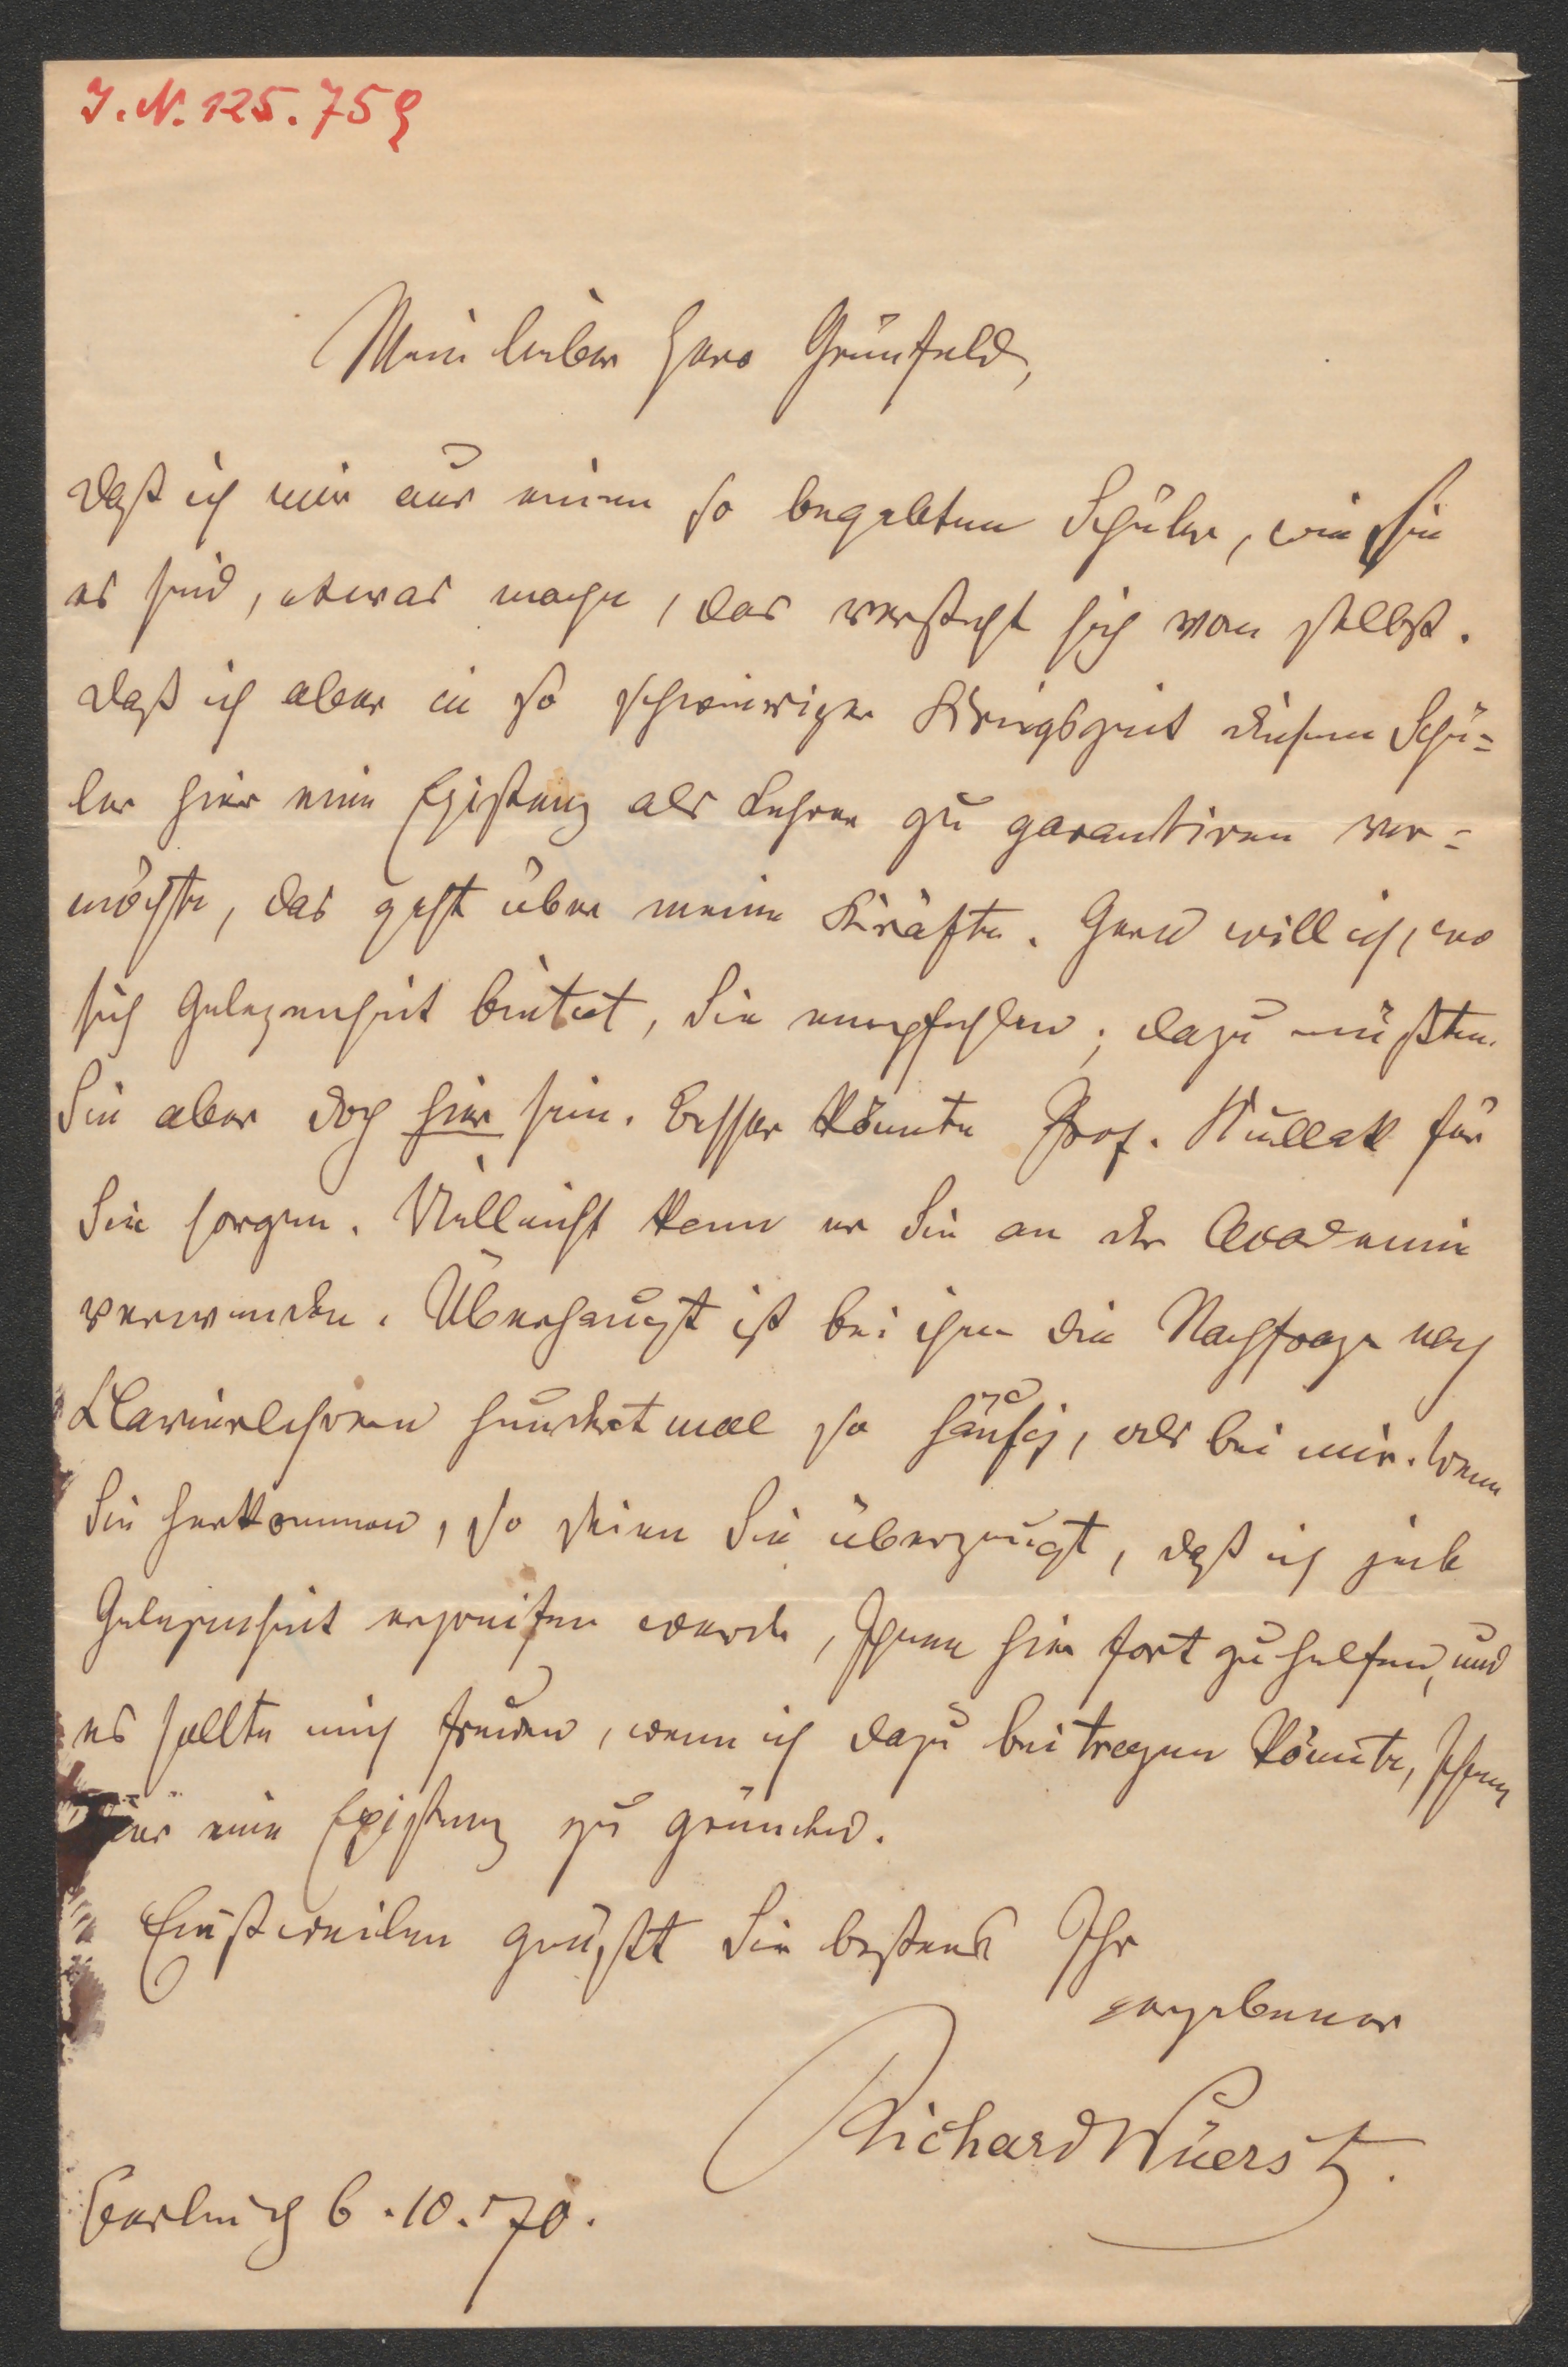 J. N. 125.759
Mein lieber Herr Grünfeld,
daß ich mir aus einem so begabten Schüler, wie Sie
es sind, etwas mache, das versteht sich von selbst.
Daß ich aber in so schwieriger Kriegszeit diesem Schü=
ler hier eine Existenz als Lehrer zu garantiren ver=
möchte, das geht über meine Kräfte. Gern will ich, wo
sich Gelegenheit bietet, Sie empfehlen; dazu müßten
Sie aber doch hier sein. Besser könnte Prof. Kullak für
Sie sorgen. Vielleicht kann er Sie an der Academie
verwenden. Überhaupt ist bei ihm die Nachfrage nach
Klavierlehrern hundertmal so häufig, als bei mir. Wenn
Sie herkommen, so seien Sie überzeugt, daß ich jede
Gelegenheit ergreifen werde, Ihnen hier fort zu helfen, und
es sollte mich freuen, wenn ich dazu beitragen könnte, Ihnen
hier eine Existenz zu gründen.
Einstweilen grüßt Sie bestens Ihr
ergebener
Richard Wüerst.
Berlin 6.10.70.